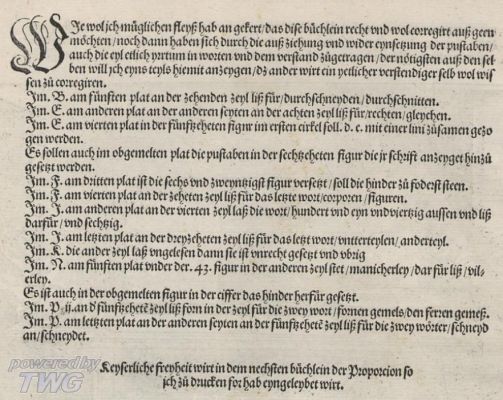 WJe wol jch müglichen fleyß hab an gekert/das dise büchlein recht vnd wol corregirt auß geen
möchten/noch dann haben sich durch die auß ziehung vnd wider eynsetzung der pustaben/
auch die eyl etlich yrrtum in worten vnd dem verstand zůgetragen/der nötigsten auß den sel
ben will jch eyns teyls hiemit anzeygen/dz ander wirt ein yetlicher verstendiger selb wol wis
sen zů corregiren.
Jm. B. am fünften plat an der zehenden zeyl liß für/durchschneyden/durchschnitten.
Jm. E. am anderen plat an der anderen seyten an der achten zeyl liß für/rechten/gleychen.
Jm. E. am vierten plat in der fünftzeheten figur im ersten cirkel soll. d. e. mit einer lini zůsamen gezo
gen werden.
Es sollen auch im obgemelten plat die pustaben in der sechtzeheten figur die jr schrift anzeyget hinzů
gesetzt werden.
Jm. F. am dritten plat ist die sechs vnd zweyntzigst figur versetzt/soll die hinder zů foderst steen.
Jm. F. am vierten plat an der zeheten zeyl liß für das letzte wort/corporen/figuren.
Jm. J. am anderen plat an der vierten zeyl laß die wort/hundert vnd eyn vnd viertzig aussen vnd liß
darfür/vnd sechtzig.
Jm. J. am letzten plat an der dreyzeheten zeyl liß für das letzt wort/vntterteylen/anderteyl.
Jm. K. die ander zeyl laß vngelesen dann sie ist vnrecht gesetzt vnd vbrig
Jm. N. am fünften plat vnder der. 43. figur in der anderen zeyl stet/manicherley/dar für liß/vil-
erley.
Es ist auch in der obgemelten figur in der ciffer das hinder herfür gesetzt.
Jm. P. ij. an d' fünftzehetē zeyl liß forn in der zeyl für die zwey wort/fornen gemels/den ferren gemeß.
Jm. P. am letzten plat an der anderen seyten an der fünftzehetē zeyl liß für die zwey wörter/schneyd
an/schneydet.
Keyserliche freyheit wirt in dem nechsten büchlein der Proporcion so
jch zů drucken for hab eyngeleybet wirt.
powered by
TWG